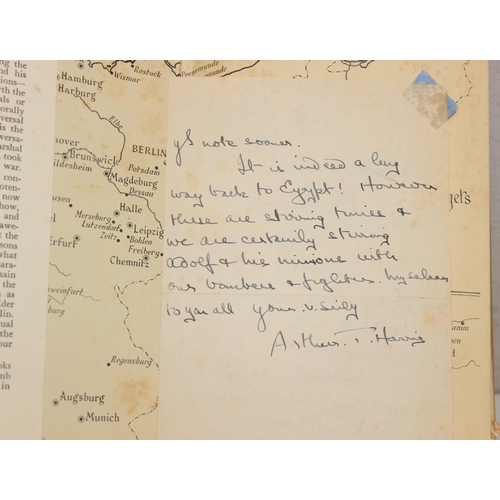 the
nd his
ions—
rth the
als or
orally
versal
is the
versa-
arshal
took
war.
con-
oten-
now
how,
and
at the
sons
what
ara-
main
as
der
lin.
ual
our
oks
mb
in
Rostock
Wismar
Peenemunde
Hamburg
Harburg
Elbe
BERLIN
nover
Brunswick
Potsdam
ildesheim
Magdeburg
Dessau
Halle
Merseburg
Leipzig
Lutzendorf
Bohlen
Zeitz
Erfurt
Freiberg
Chemnitz
weinfurt
nberg
Regensburg
Augsburg
Munich
gel's
yr note sooner.
It is indeed a long
way back to Egypt! However
these are stirring times &
we are certainly stirring
Adolf & his minions with
our bombers & fighters. My salaams
to you all yours. v. sincly
Arthur. T. Harris